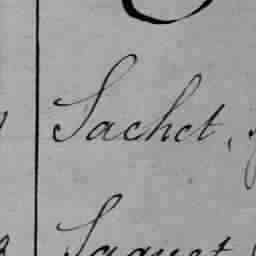 Sachet,
Saquet